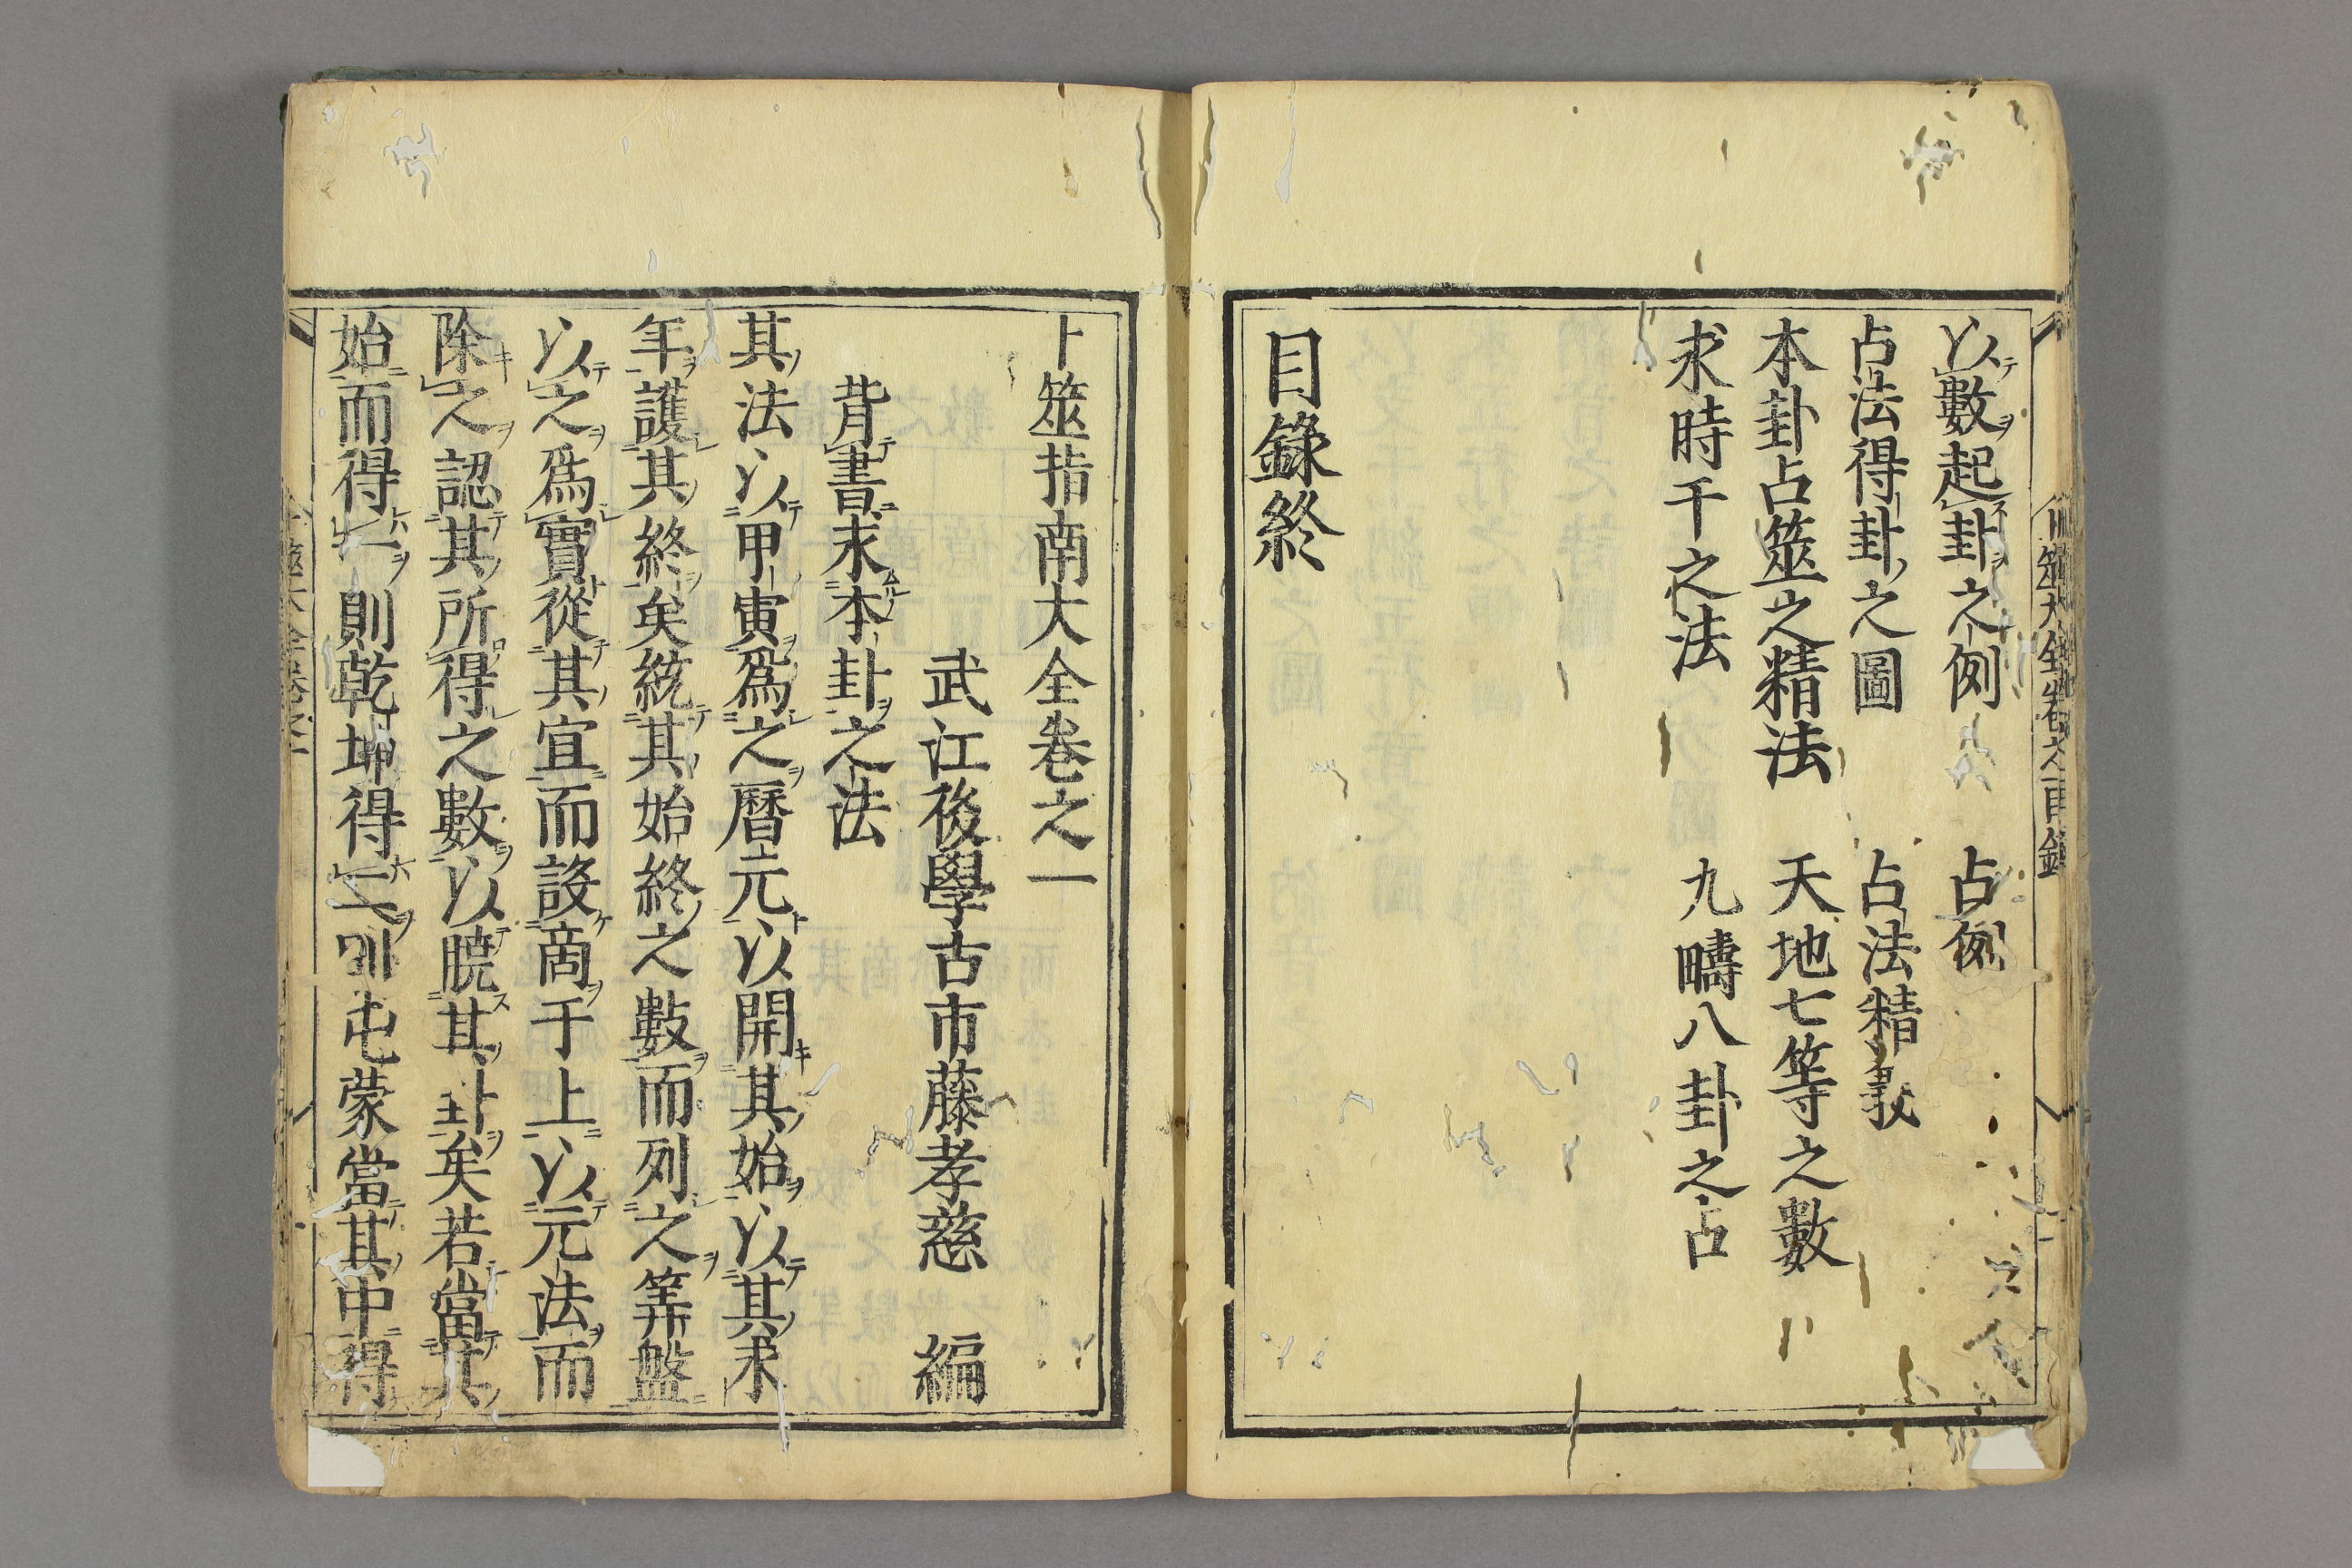 以數起卦之例 占例
占法得卦之圖 占法精義
本卦占筮之精法 天地七等之數
求時干之法 九疇八卦之占
目錄終
卜筮指南大全卷之一
武江後學古市藤孝慈 編
背書求本卦之法
其法以甲寅爲之曆元以開其始以其求
年護其終矣統其始終之數而列之筭盤
以之爲實從其宜而設商于上以元法而
除之認其所得之數以曉其卦矣若當其
始而得一則乾坤得二則屯蒙當其中得